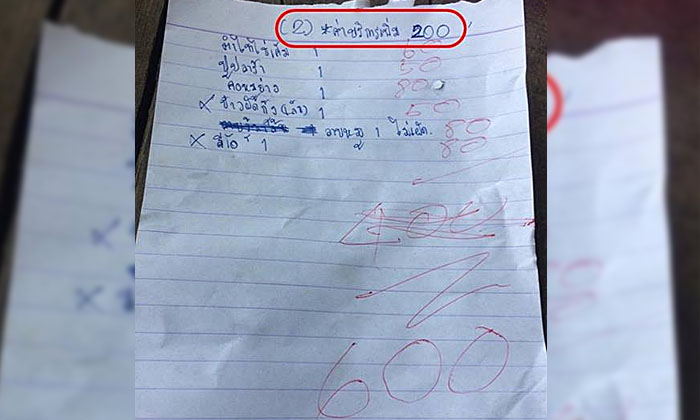 (2) *ค่าบริการเพิ่ม 200
ตำไทไข่เค็ม 1 60
ปูปลาร้า 1 50
คอหมูย่าง 1 80
× ข้าวผัดกุ้ง (เล็ก) 1 50
ลาบหมู 1 ไม่เผ็ด. 80
× 1 80
400
600